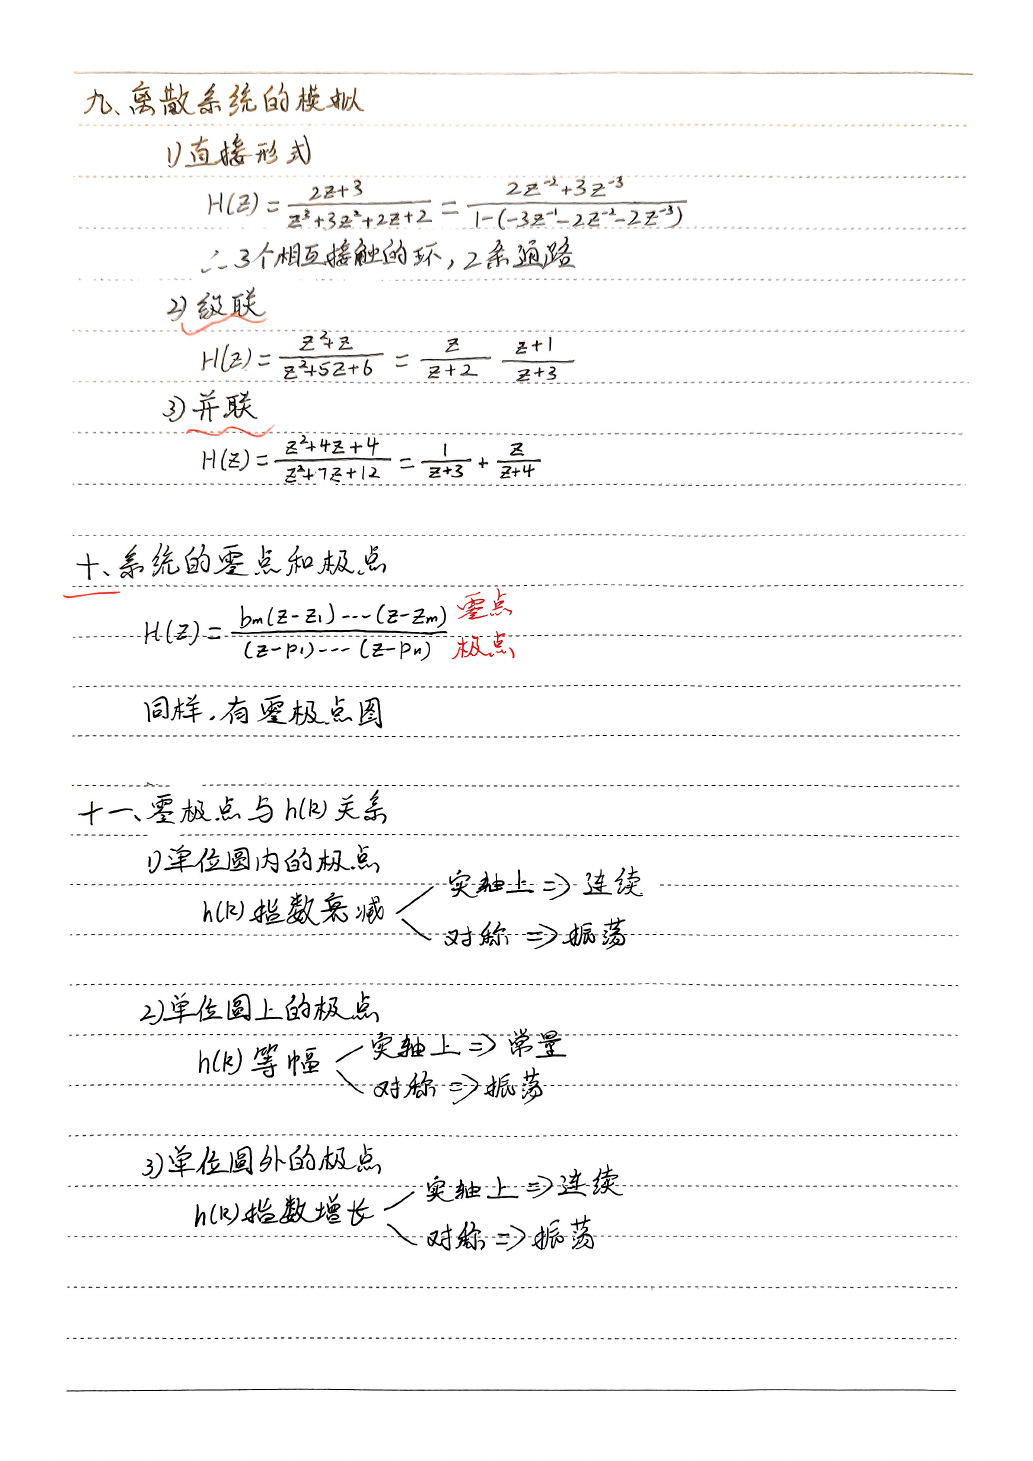 九、离散系统的模拟
1)直接形式
H(z) = (2z+3)/(z³+3z²+2z+2) = (2z⁻²+3z⁻³)/(1-(-3z⁻¹-2z⁻²-2z⁻³))
∴ 3个相互接触的环, 2条通路
2)级联
H(z) = (z²+z)/(z²+5z+6) = z/(z+2) (z+1)/(z+3)
3)并联
H(z) = (z²+4z+4)/(z²+7z+12) = 1/(z+3) + z/(z+4)
十、系统的零点和极点
H(z) = (bₘ(z-z₁)---(z-zₘ))/((z-p₁)---(z-pₙ)) 零点 极点
同样,有零极点图
十一、零极点与h(k)关系
1)单位圆内的极点
h(k)指数衰减
实轴上 => 连续
对称 => 振荡
2)单位圆上的极点
h(k)等幅
实轴上 => 常量
对称 => 振荡
3)单位圆外的极点
h(k)指数增长
实轴上 => 连续
对称 => 振荡